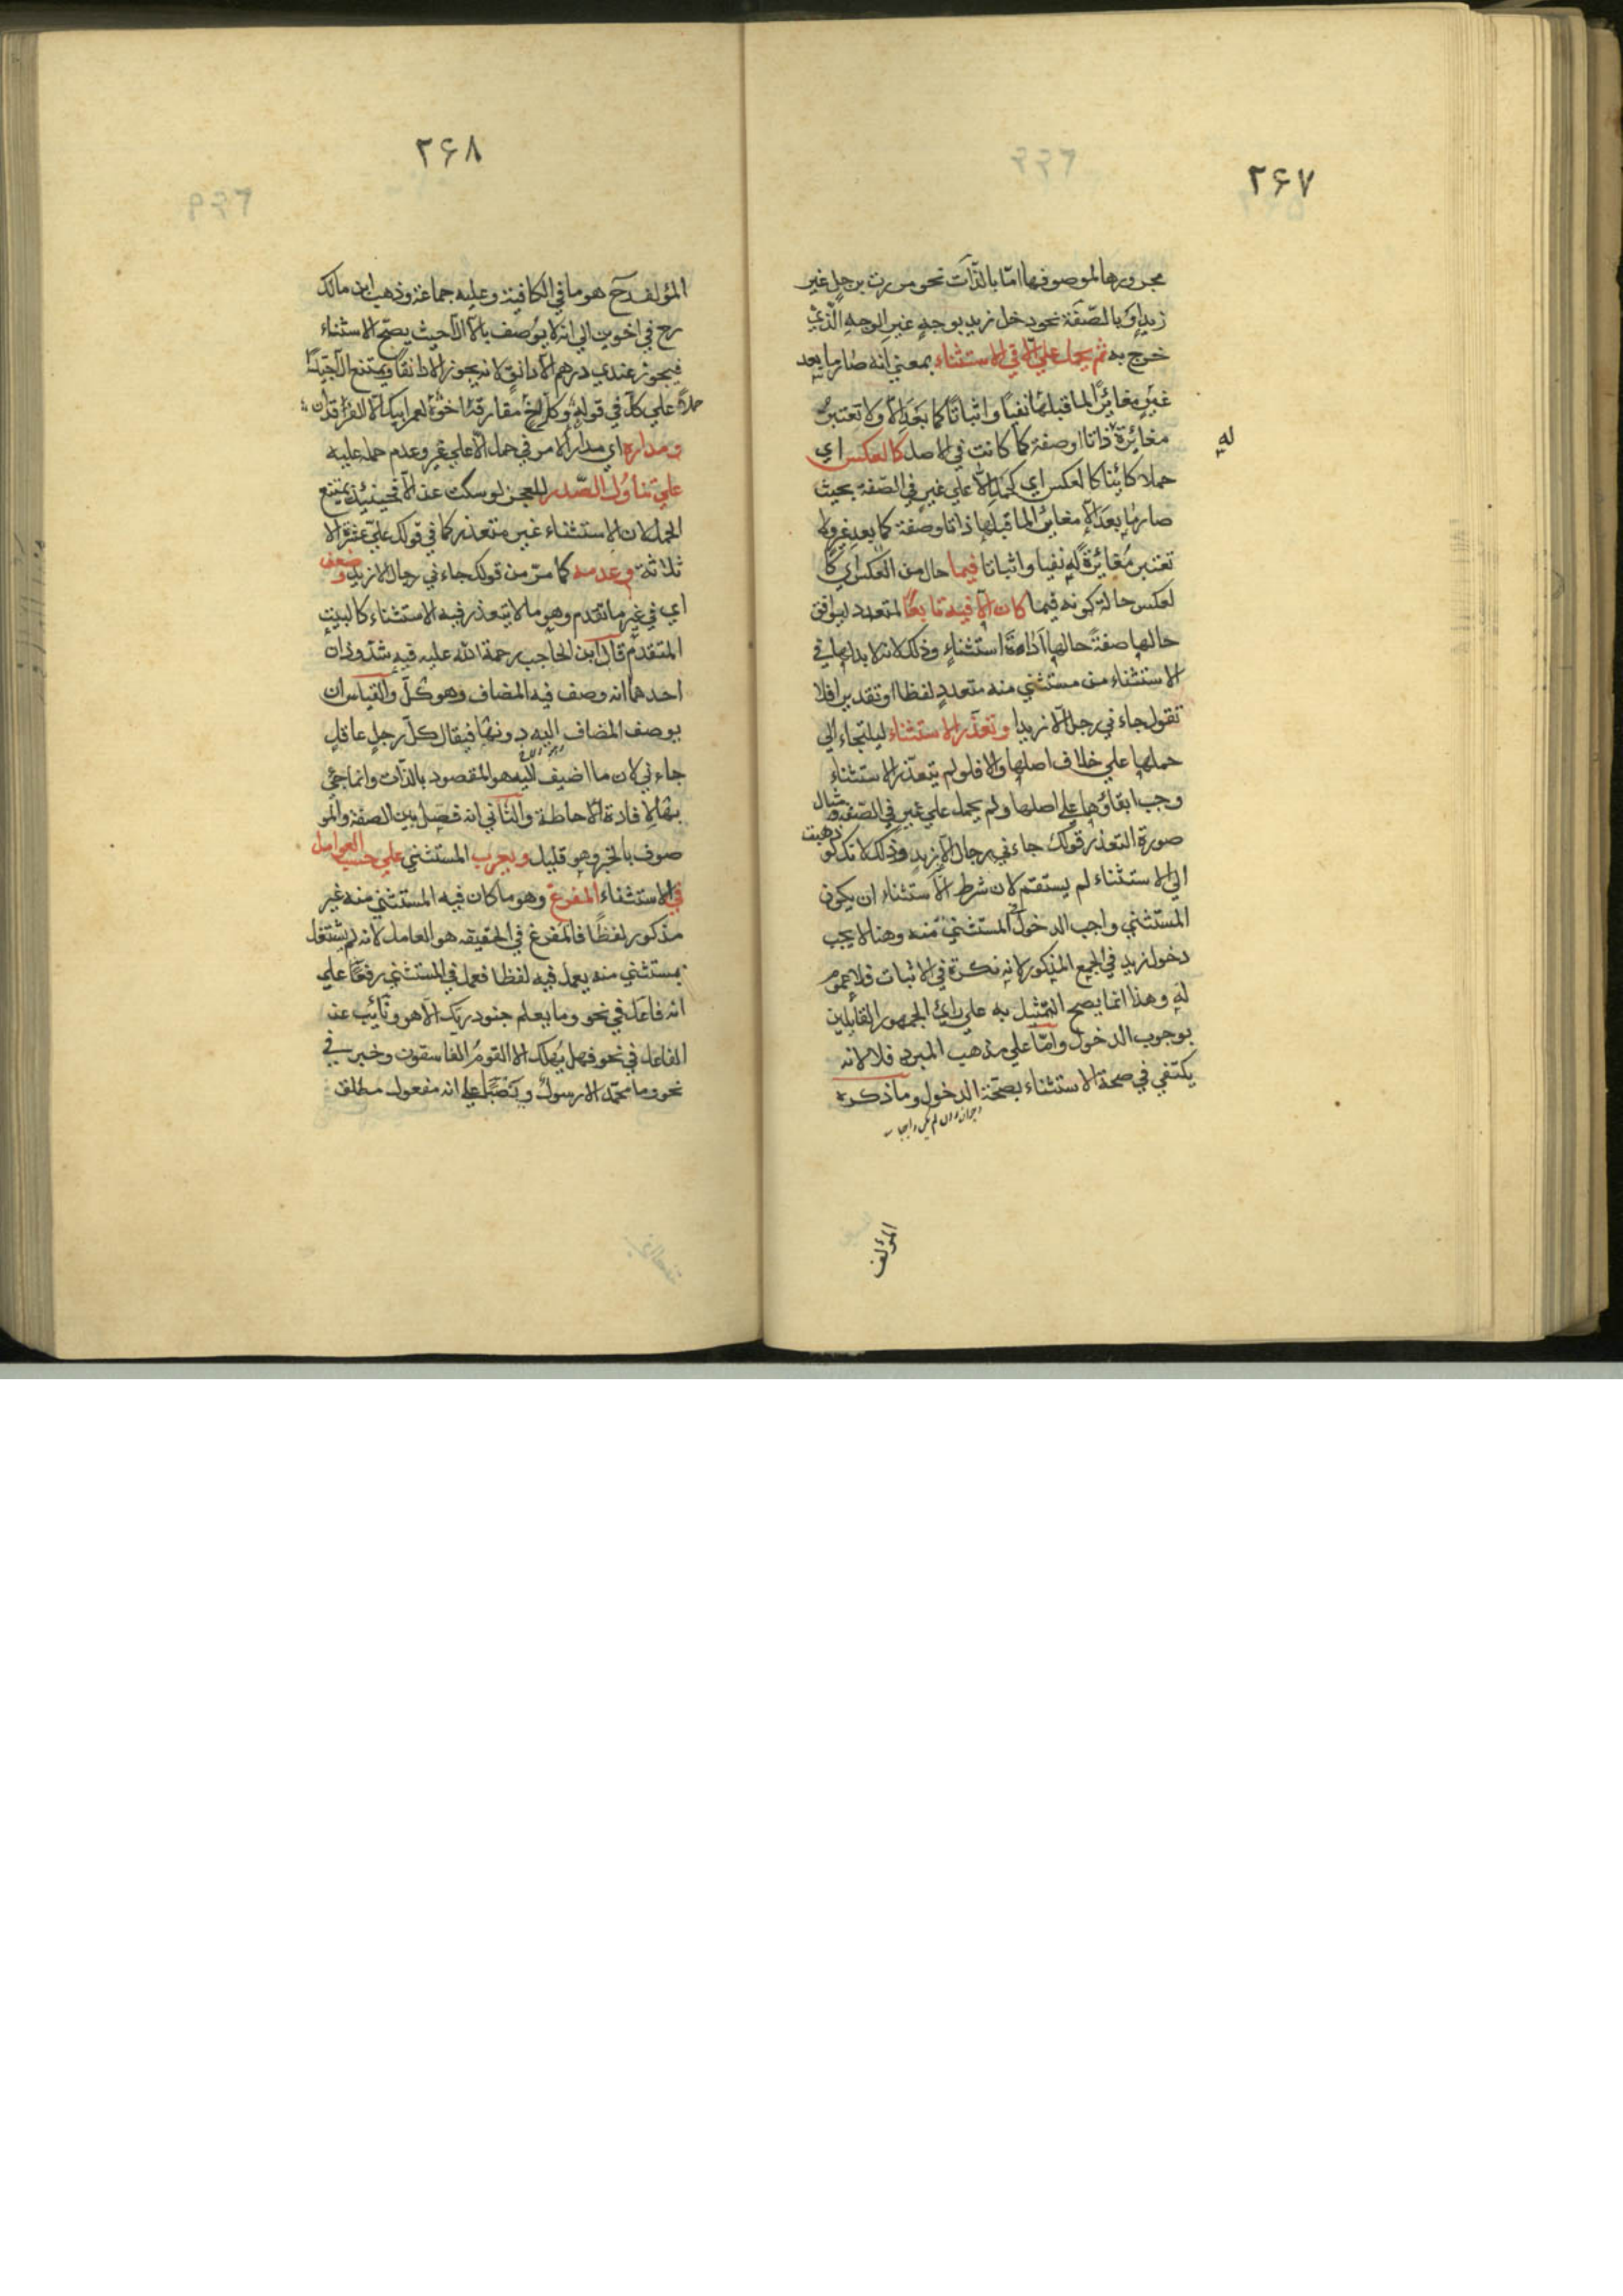 ٢۶٧
مجرورها لموصوفها امّا بالذّات نحو مررت برجلٍ غير
زيدٍ او بالصّفة نحو دخل زيد بوجهٍ غير الوجه الّذي
خرج به ثم يحمل علي الّا في الاستثناء بمعني انه صار ما بعد
غيرٍ مغائرًا لما قبلها نفيًا واثباتًا كما بعد الّا ولا تعتبر
مغائرة ذاتا او صفة كما كانت في الاصل كالعكس اي
له
حملا كائنا كالعكس اي كحمل الّا علي غير في الصّفة بحيث
صار ما بعد الّا مغايرًا لما قبلها ذاتا وصفة كما بعد غير ولا
تعتبر مغائرة له نفيا واثباتا فيما حال من العكس اي كا
لعكس حالة كونه فيما كان الّا فيه تابعًا لمتعدد ليوافق
حالها صفةً حالها اداةَ استثناءٍ وذلك لانه لا بد لها في
الاستثناء من مستثني منه متعددٍ لفظا او تقديرا فلا
تقول جاءني رجل الّا زيدا وتعذّر الاستثناء ليلتجاء الي
حملها علي خلاف اصلها والا فلو لم يتعذّر الاستثناء
وجب ابقاؤها علي اصلها ولم يحمل علي غير في الصّفة ومثال
صورة التعذر قولك جاءني رجال الّا زيد وذلك لانك لو ذهبت
الي الاستثناء لم يستقم لان شرط الاستثناء ان يكون
المستثني واجب الدخول في المستثني منه وهنا لا يجب
دخول زيد في الجمع المذكور لانه نكرة في الاثبات فلا عموم
له وهذا انما يصح التمثيل به علي راي الجمهور القايلين
بوجوب الدخول وامّا علي مذهب المبرد فلا لانه
يكتفي في صحة الاستثناء بصحّة الدخول وما ذكره
المؤلف
٢۶٨
المؤلف رح هو ما في الكافية وعليه جماعة وذهب ابن مالك
رح في اخوين الي انه لا يوصف بالّا الّا حيث يصحّ الاستثناء
فيجوز عندي درهم الّا دانقٍ لانه يجوز الا دانقًا ويمتنع الّا جيّدًا
علي كلّ في قوله وكلّ اخٍ مفارقه اخوه لعمر ابيك الّا الفرقدان
ومداره اي مدار الامر في حمل الّا علي غير وعدم حمله عليه
علي تناول الصّدر للعجز لو سكت عن الّا فحينئذ يمتنع
الحمل لان الاستثناء غير متعذر كما في قولك عليّ عشرة الا
ثلاثة وعدمه كما مرّ من قولك جاءني رجال الا زيد وضعف
اي في غير ما تقدم وهو ما لا يتعذر فيه الاستثناء كالبيت
المتقدم قال ابن الحاجب رحمة الله عليه فيه شذوذان
احدهما انه وصف فيه المضاف وهو كلّ والقياس ان
يوصف المضاف اليه دونها فيقال كلّ رجل عاقلٍ
جاءني لان ما اضيف اليه هو المقصود بالذّات وانما جئ
بها لافادة الاحاطة والثاني انه فصل بين الصفة والمو
صوف بالخبر وهو قليل ويعرب المستثني علي حسب العوامل
في الاستثناء المفرغ وهو ما كان فيه المستثني منه غير
مذكور لفظًا فالمفرغ في الحقيقه هو العامل لانه لم يشتغل
بمستثني منه يعمل فيه لفظا فعمل في المستثني رفعًا علي
انه فاعل في نحو وما يعلم جنود ربك الّا هو ونائب عن
الفاعل في نحو فهل يهلك الا القوم الفاسقون وخبر في
نحو وما محمّد الا رسول ونصبًا علي انه مفعول مطلق